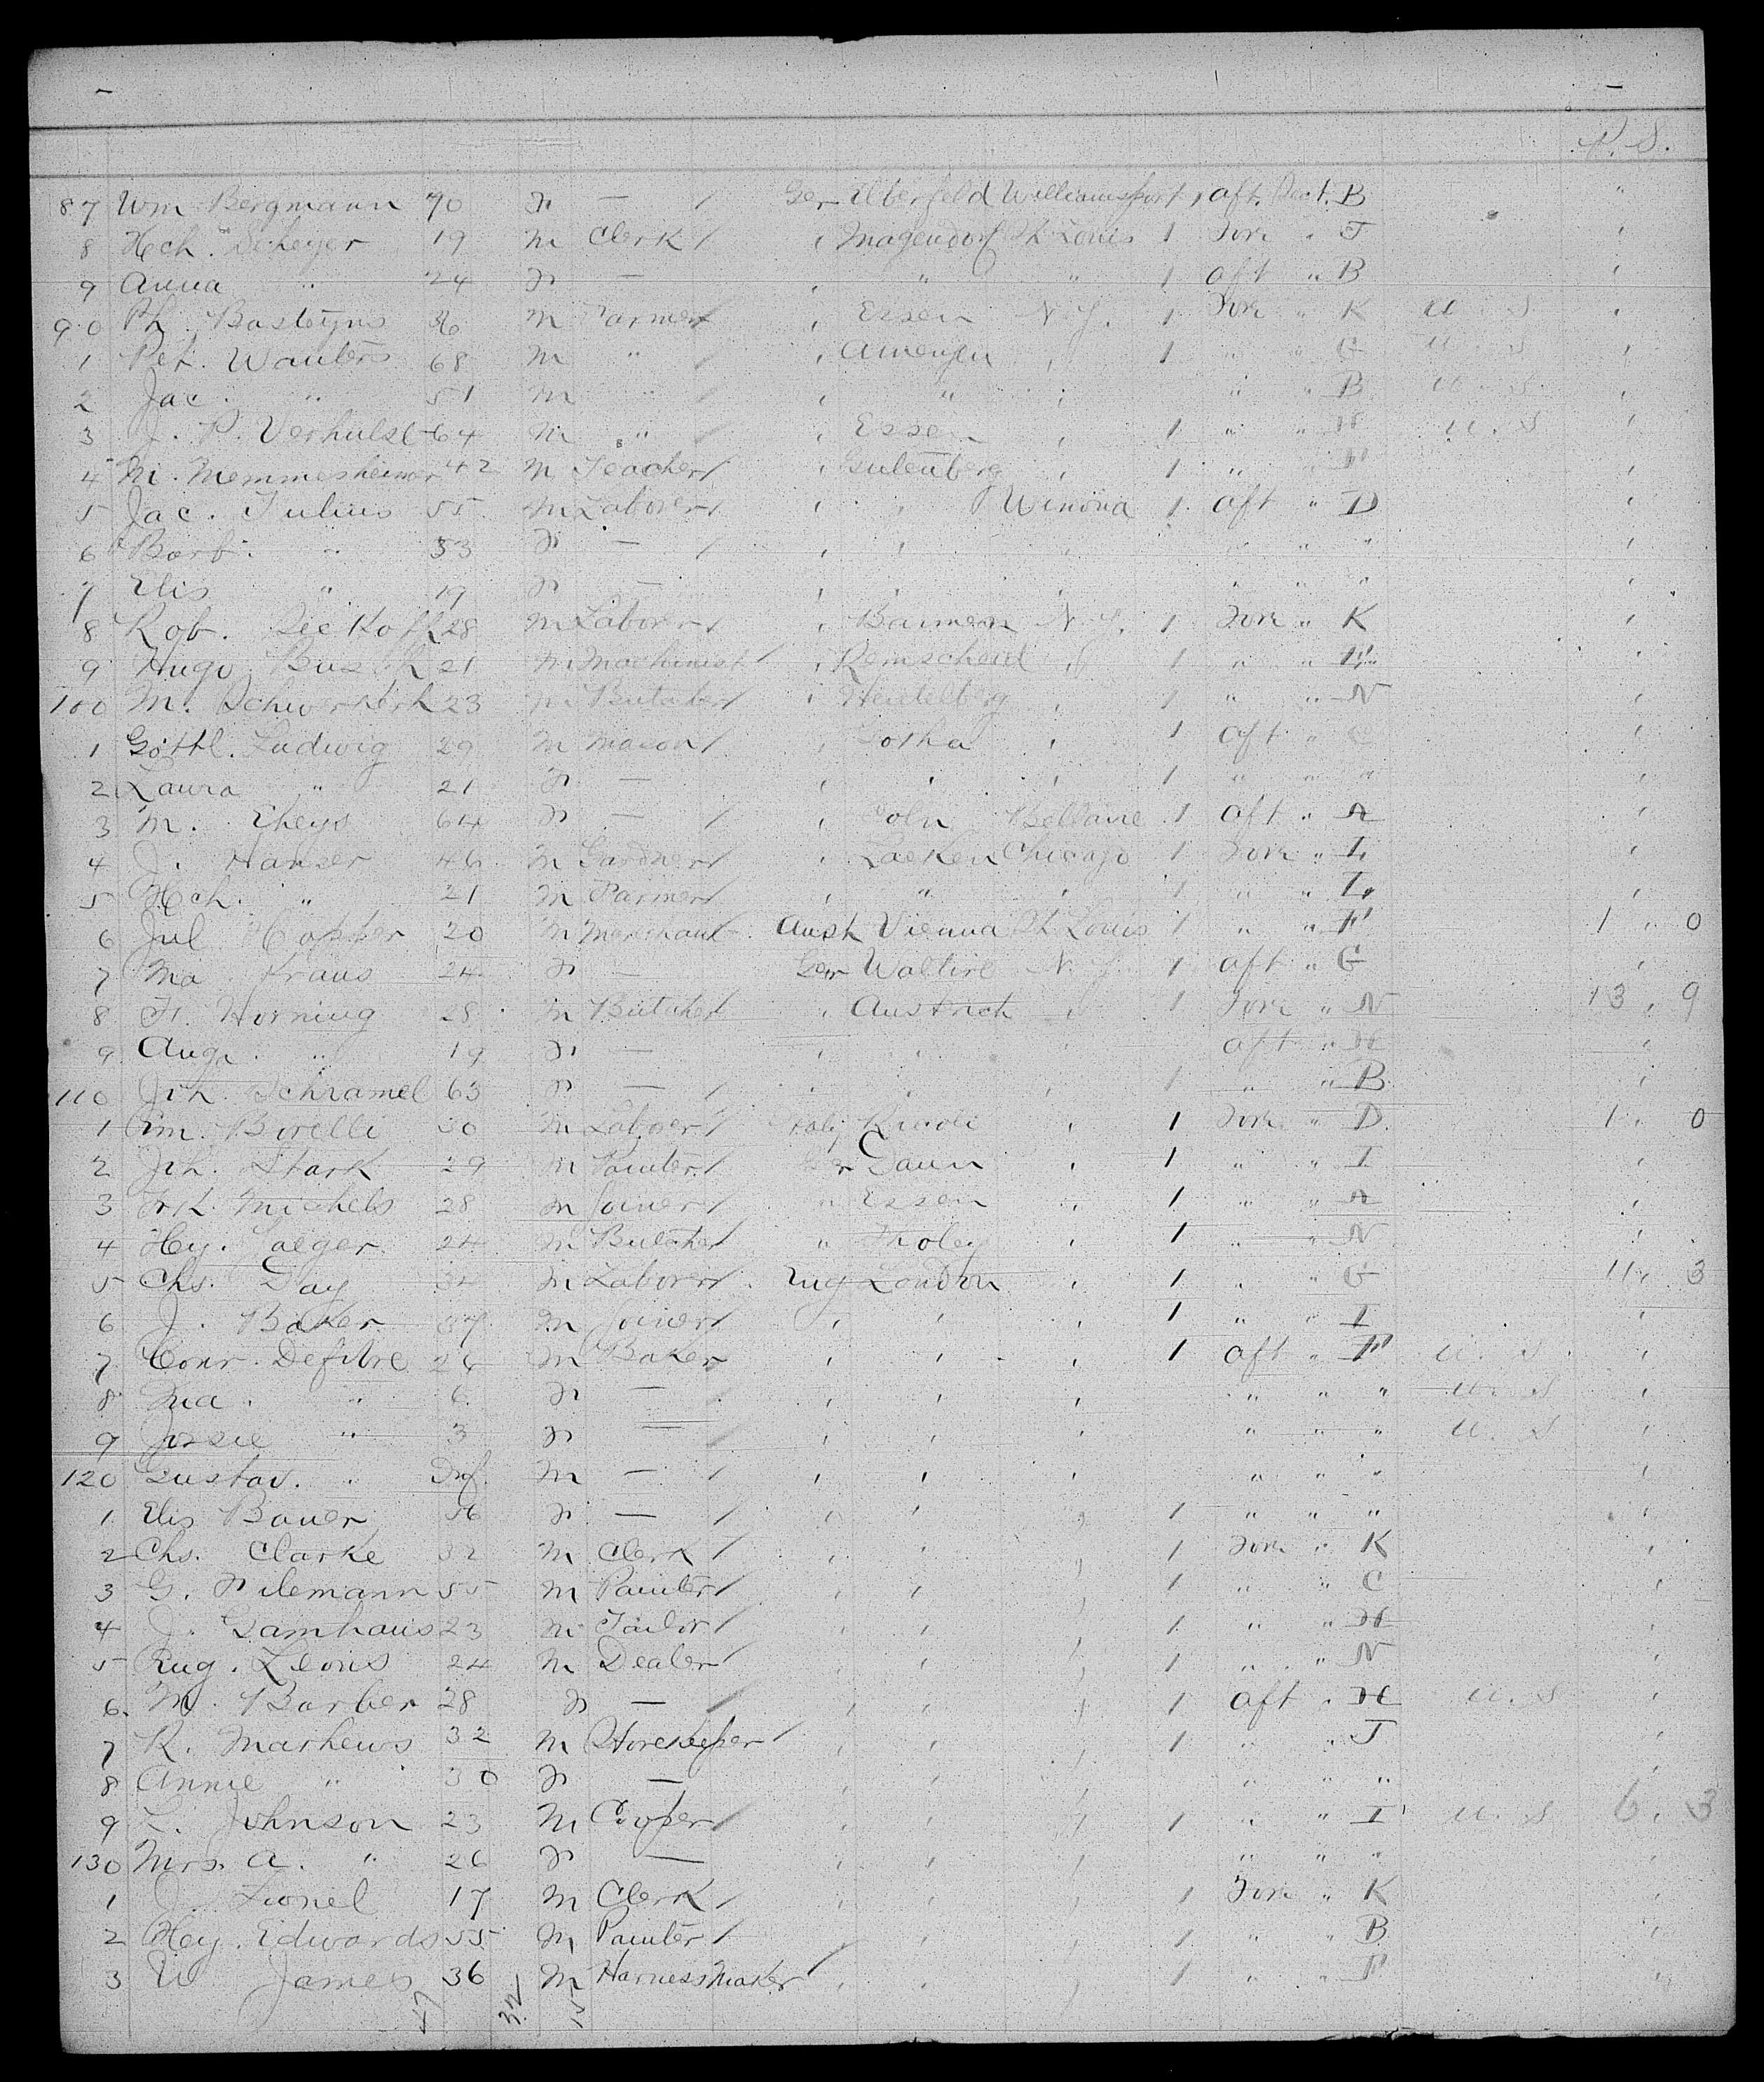 P. S.
87 Wm Bergmann 70 F — / Ger Elberfeld Williamsport 1 Aft. Dect. B "
8 Hch. Scheyer 19 M Clerk / " Magendorf St Louis 1 Fore " J "
9 Anna " 24 F — " " " 1 aft " B "
90 Ph. Basteyns 36 M Farmer / " Essen N. Y. 1 Fore " K U. S "
1 Pet. Wauters 68 M " / " " 1 " " G U. S "
2 Jac. " 51 M " / " " " " " B U. S. "
3 J. P. Verhulst 64 M " / " Essen " 1 " " H U. S "
4 M. Memmesheimer 42 M Teacher / " Gutenberg " 1 " " F "
5 Jac. Julius 55 M Laborer / " " Winona 1 Aft " D "
6 Barb. " 53 F — / " " " " " " "
7 Elis " 19 F — " " " " " " "
8 Rob. 28 M Laborer / " Barmen N. Y. 1 Fore " K "
9 Hugo Busch 21 M Machinist / " Remscheid " 1 " " "
100 M. 23 M Butcher / " Heidelberg " 1 " " N "
1 Gottl. Ludwig 29 M Mason / " Gotha " 1 Aft " C "
2 Laura " 21 F — " " " 1 " " " "
3 M. Theys 64 F — / " Coln Bellaire 1 Aft " A "
4 J. Hanser 46 M Gardner / " Laeken Chicago 1 Fore " L "
5 Hch. " 21 M Farmer / " " " 1 " " L "
6 Jul 20 M Merchant Aust Vienna St. Louis 1 " " F 1 " 0
7 Ma. Kraus 24 F — Ger N. Y. 1 aft " G "
8 Fr. Horning 28 M Butcher / " Austrich " 1 Fore " N 13 " 9
9 Aug. " 19 F — " " " aft " H "
110 Joh. Schramel 63 F — / " " " 1 " " B "
1 Im. Borelli 30 M Laborer / Italy " 1 Fore " D 1 " 0
2 Joh. Stark 29 M Painter / Ger Daun " 1 " " I "
3 Frk. Michels 28 M Joiner / " Essen " 1 " " A "
4 Hey. Jaeger 24 M Butcher / " Tholey " 1 " " N "
5 Chs. Day 34 M Laborer / Eng London " 1 " " G 11 " 3
6 J. Baker 37 M Joiner / " " " 1 " " I "
7 Conr. Defibre 26 M Baker " " " 1 aft " F U. S. "
8 Ma. " 6 F — / " " " " " " U. S "
9 Josie " 3 F — / " " " " " " U. S "
120 Gustav. " Inf. M — / " " " " " " "
1 Elis Bauer 56 F — / " " " 1 " " " "
2 Chs. Clarke 32 M Clerk / " " " 1 Fore " K "
3 G. Filemann 55 M Painter / " " " 1 " " C "
4 J. Gamhaus 23 M Tailor / " " " 1 " " H "
5 Eug. Leons 24 M Dealer / " " " 1 " " N "
6. M. Barber 28 F — / " " " 1 aft " H U. S "
7 R. Mathews 32 M Storekeeper / " " " 1 " " J "
8 Annie " 30 F — " " " " " " "
9 Johnson 23 M Cooper / " " " 1 " " I U. S 6. 3
130 Mrs. A. " 26 F — " " " " " " "
1 J. Lionel 17 M Clerk / " " " 1 Fore " K "
2 Hey. Edwards 55 M Painter / " " " 1 " " B "
3 W James 36 M Harnessmaker / " " " 1 " " F "
47 32 15